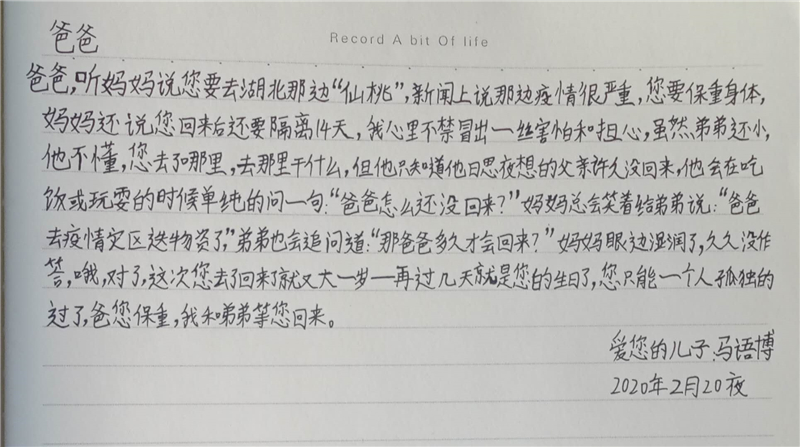 Record A bit Of life
爸爸
爸爸,听妈妈说您要去湖北那边“仙桃”,新闻上说那边疫情很严重,您要保重身体,
妈妈还说您回来后还要隔离14天,我心里不禁冒出一丝害怕和担心,虽然弟弟还小,
他不懂,您去了哪里,去那里干什么,但他只知道他日思夜想的父亲许久没回来,他会在吃
饭或玩耍的时候单纯的问一句:“爸爸怎么还没回来?”妈妈总会笑着给弟弟说:“爸爸
去疫情灾区送物资了,”弟弟也会追问道:“那爸爸多久才会回来?”妈妈眼边湿润了,久久没作
答,哦,对了,这次您去了回来了就又大一岁——再过几天就是您的生日了,您只能一个人孤独的
过了,爸您保重,我和弟弟等您回来。
爱您的儿子:马语博
2020年2月20夜